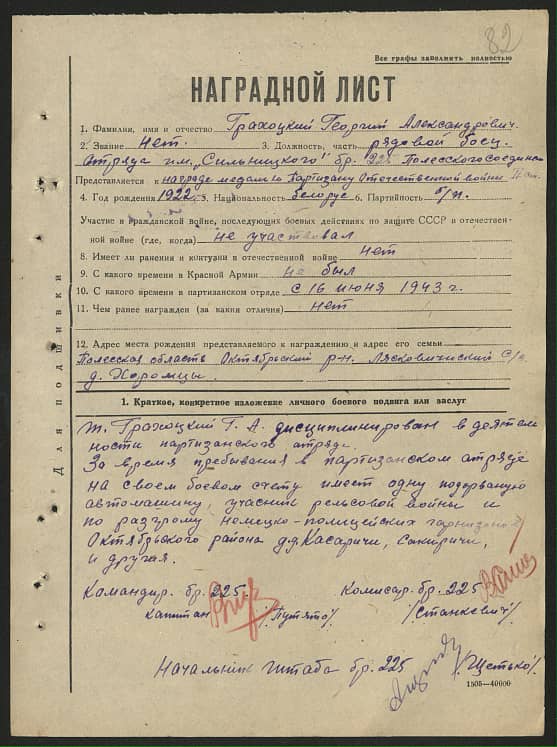 82
Все графы заполнить полностью
НАГРАДНОЙ ЛИСТ
1. Фамилия, имя и отчество Трахоцкий Георгий Александрович.
2. Звание Нет. 3. Должность, часть рядовой боец.
Отряда им. „Сильницкого" бр. 225 Полесского соединен
Представляется к награде медалью Партизану Отечественной войны II ст.
4. Год рождения 1922. 5. Национальность белорус 6. Партийность б/п.
Участие в гражданской войне, последующих боевых действиях по защите СССР и отечествен-
ной войне (где, когда) не участвовал
8. Имеет ли ранения и контузии в отечественной войне нет
9. С какого времени в Красной Армии не был
10. С какого времени в партизанском отряде с 16 июня 1943 г.
11. Чем ранее награжден (за какие отличия) нет
12. Адрес места рождения представляемого к награждению и адрес его семьи
Полесская область Октябрьский р-н. Лясковичский С/с.
д. Хоромцы.
Для подшивки
1. Краткое, конкретное изложение личного боевого подвига или заслуг
т. Трахоцкий Г. А. дисциплинирован в деятель
ности партизанского отряда.
За время пребывания в партизанском отряде
на своем боевом счету имеет одну подорваную
автомашину, участник рельсовой войны и
по разгрому немецко-полицейских гарнизонов
Октябрьского района д.д. Касаричи, Сакиричи,
и другая.
Командир. бр. 225. Комисар. бр. 225
капитан /Путято/ /Станкевич/
Начальник штаба бр. 225 /Щетько/
1505—40000